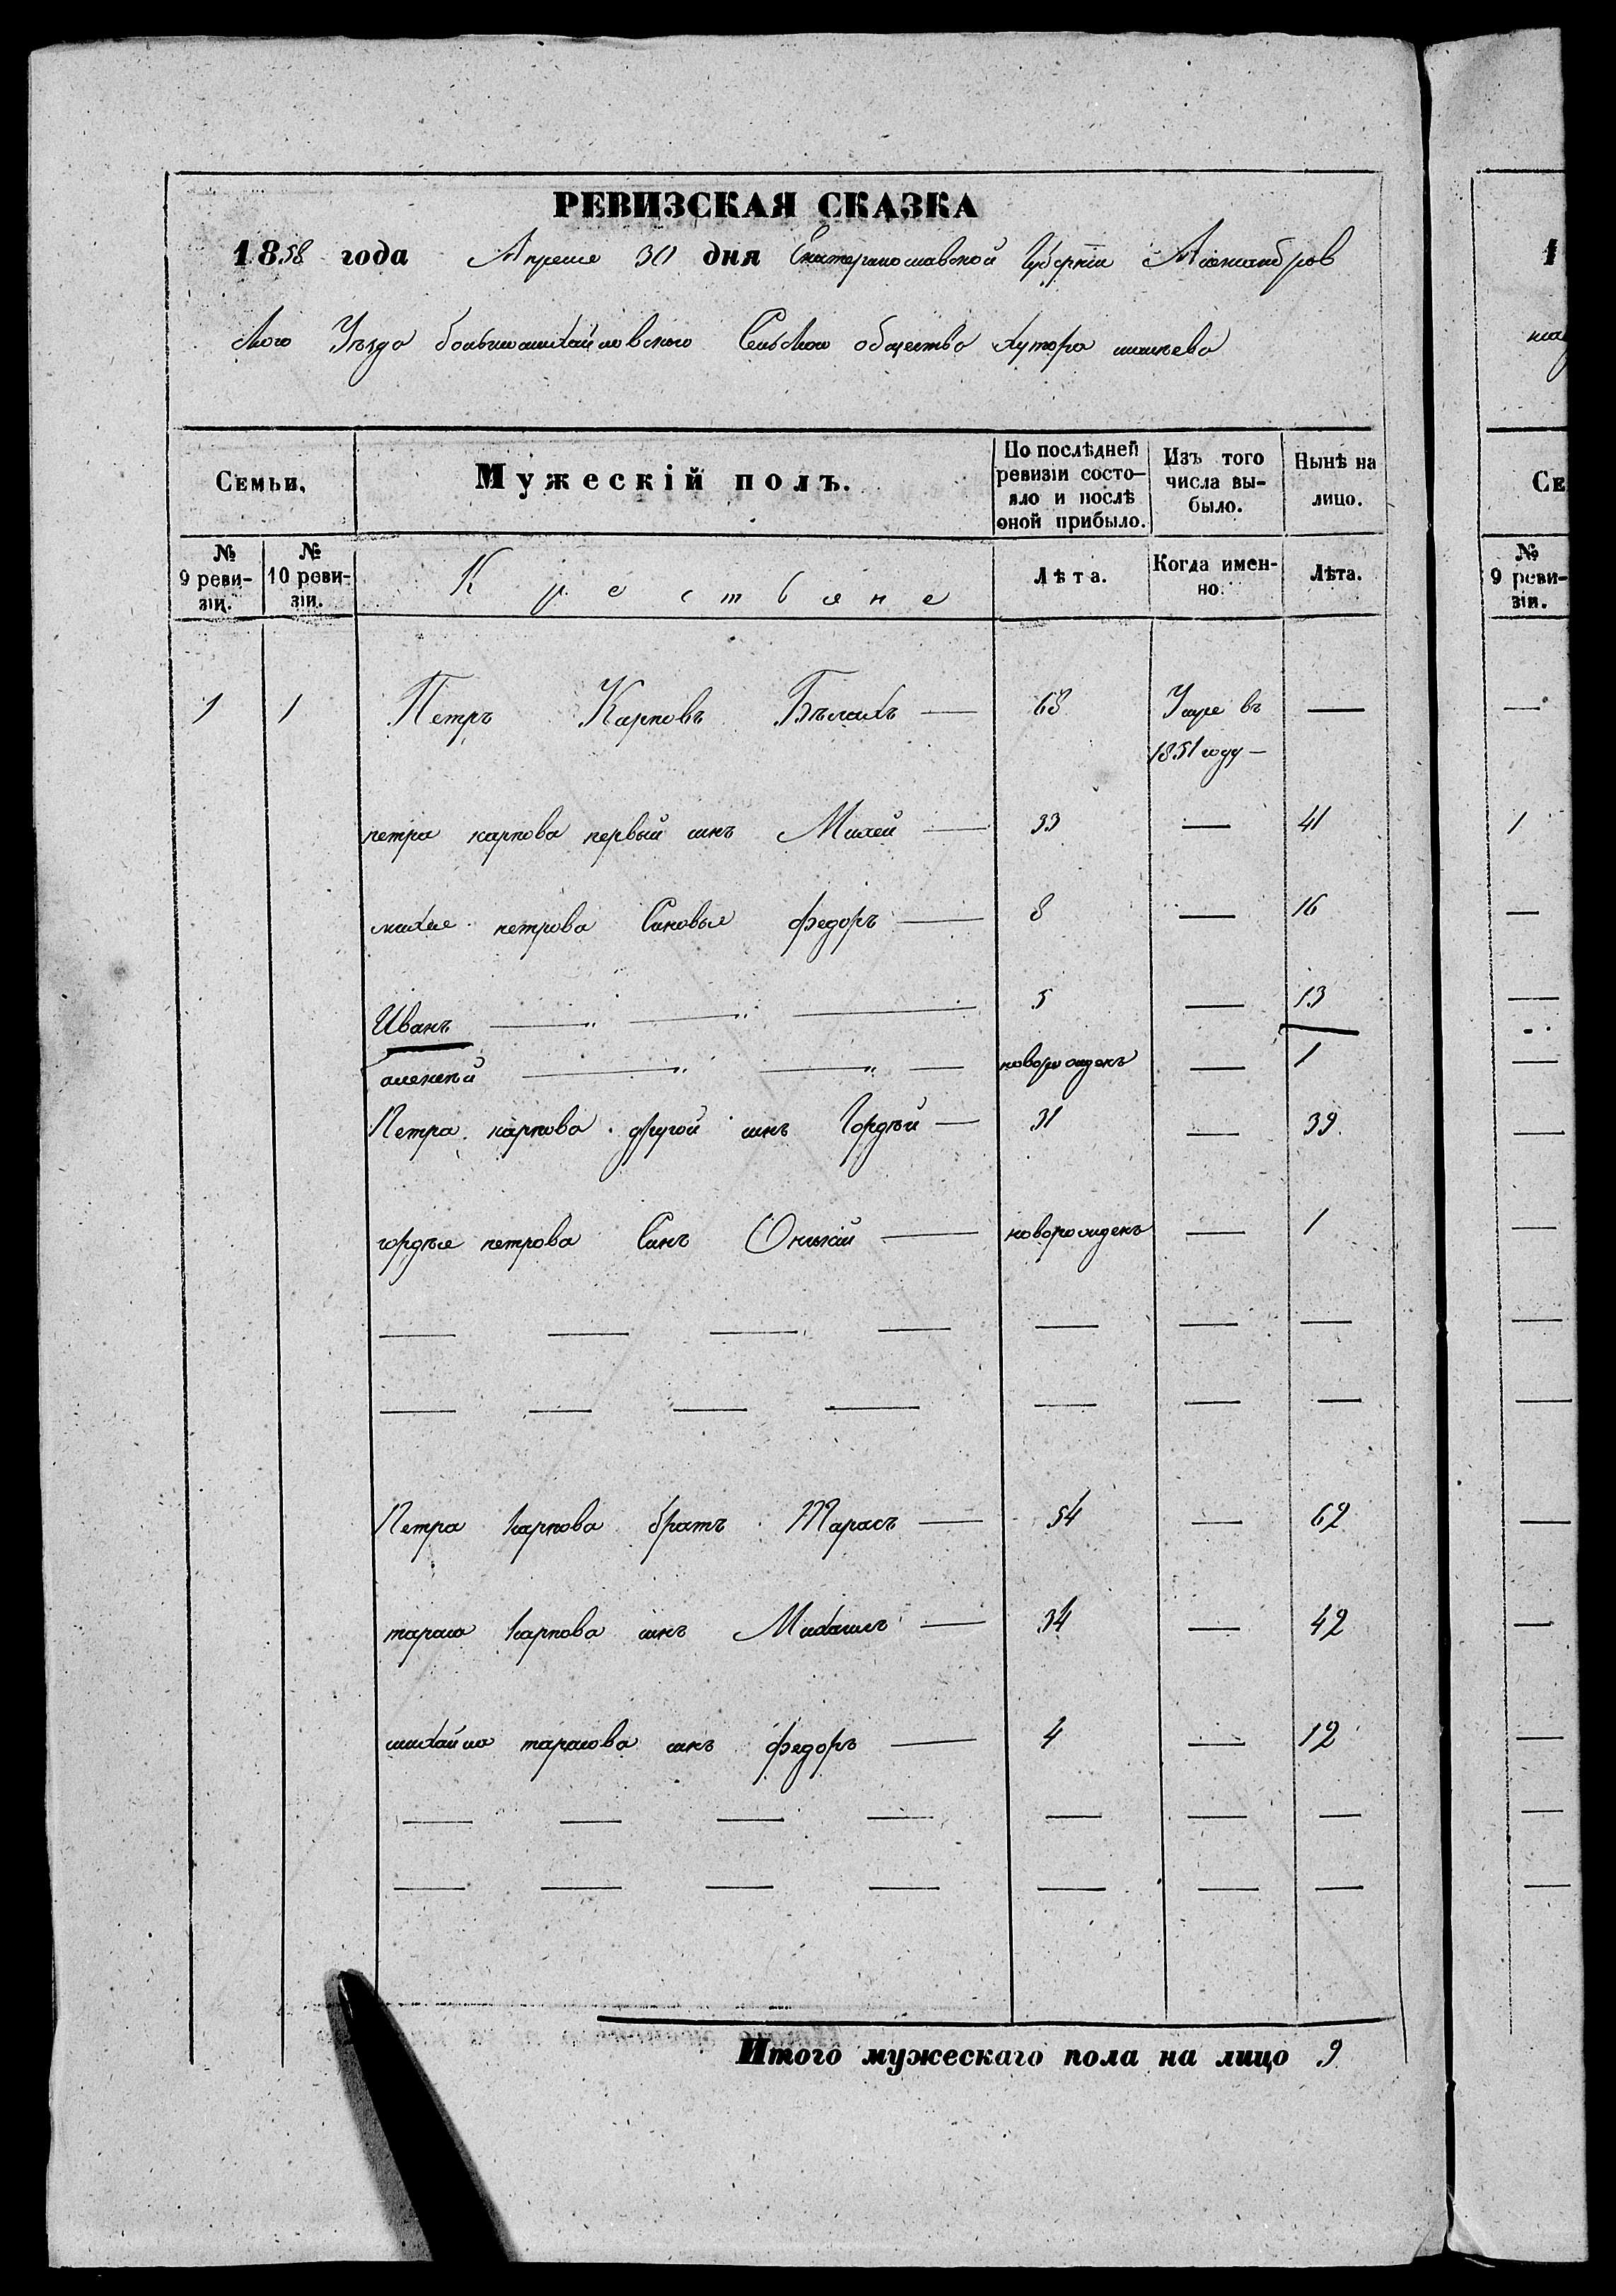 РЕВИЗСКАЯ СКАЗКА
1858 года Апреля 30 дня Екатеринославской Губернии Александров
ского Уезда большемихайловского Сельского общества хутора
Семьи. Мужескій полъ. По послѣдней ревизіи состо- яло и послѣ оной прибыло. Изъ того числа вы- было. Нынѣ на лицо.
№ 9 реви- зіи. № 10 реви- зіи. Крестьяне Лѣта. Когда имен- но. Лѣта.
1 1 Петръ Карповъ Бѣлихъ — 63 Умре въ —
1851 году —
петра карпова первый синъ Михей — 33 — 41
михея петрова Синовья федоръ — 8 — 16
Иванъ — " — " — 5 — 13
алексѣй — " — " — новорожденъ — 1
Петра карпова другой синъ Гордѣй — 31 — 39
гордѣя петрова Синъ — новорожденъ — 1
— — — — — — —
— — — — — — —
Петра карпова братъ Тарасъ — 54 — 62
тараса карпова синъ Михаилъ — 34 — 42
михайла тарасова синъ федоръ — 4 — 12
— — — — — — —
— — — — — — —
Итого мужескаго пола на лицо 9
1
СЕ
№ 9 реви- зіи.
1